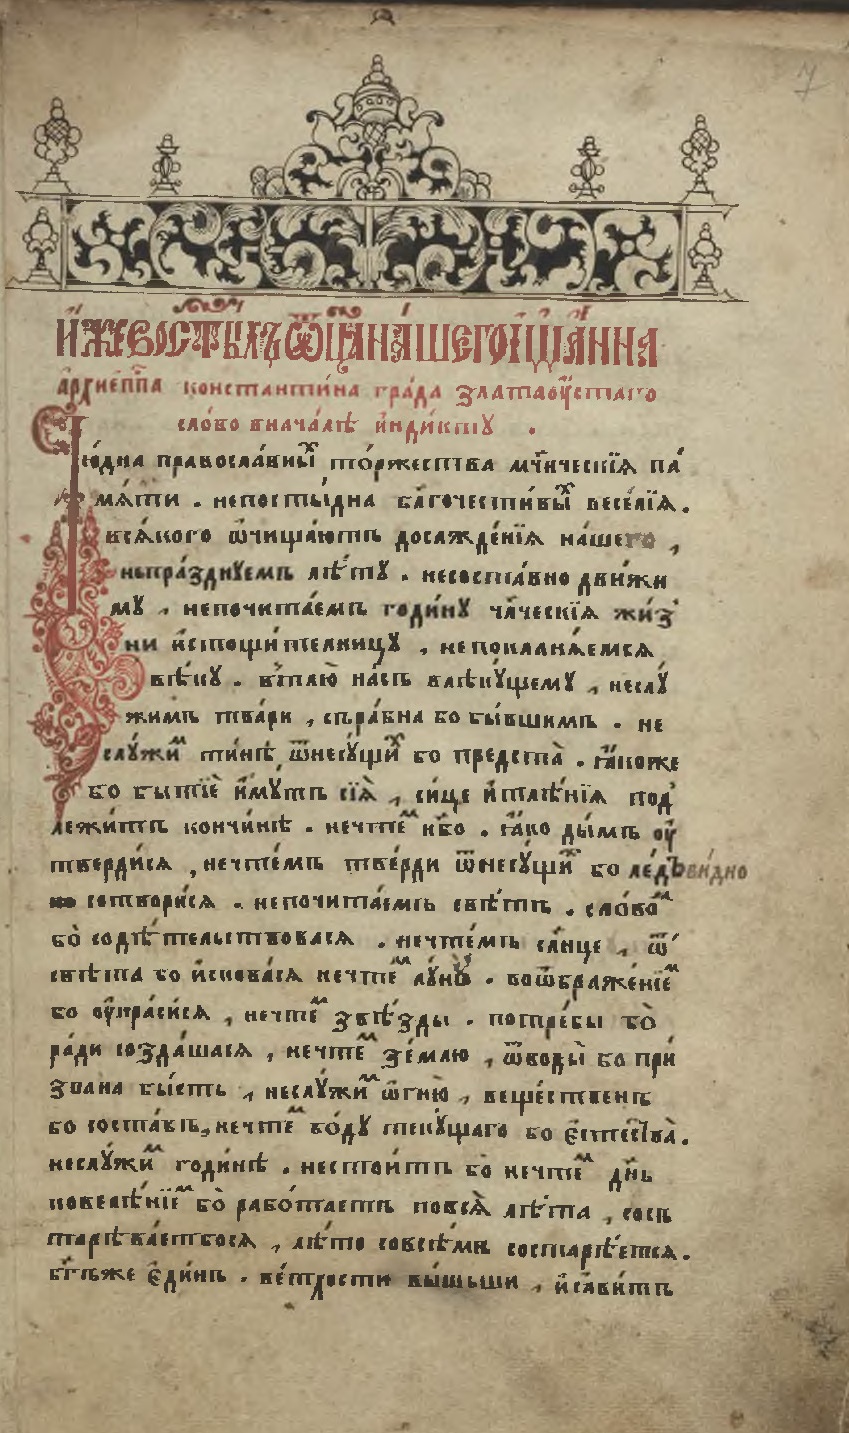 И҆́же во ст҃ы́хъ ѿц҃а̀ на́шегѡ і҆ѡа́нна
а҆рхїеп҃па константи́на гра́да златаоу҆́стаго
сло́во внача́лѣ и҆нди́ктꙋ .
Є҆ю́дна правосла́вныⷯ то́ржества мч҃нческїѧ па́
мѧти . непосты́дна бл҃гочести́выⷯ весе́лїѧ.
всѧ́кого ѡ҆чища́ютъ дослажде́нїѧ на́шего ,
непра́зднꙋемъ лѣ́тꙋ . несоста́вно дви́жи
мꙋ , непочита́емъ годи́нꙋ чл҃ческїѧ жи́з
ни и҆стощи́телницꙋ , непокланѧ́емсѧ
вѣ́кꙋ . втлю̀ на́съ влѣкꙋ́щемꙋ , неслꙋ́
жимъ тва́ри , съра́бна бо бы́вшимъ . не
слꙋ́жиⷨ ти́нѣ, ѿнесꙋ́щиⷯ бо предста̀ . ꙗ҆́коже
бо бытїѐ и҆́мꙋтъ сїѧ̀ , си́це и҆стлѣ́нїѧ под
лежи́тъ кончи́нѣ . нечте́ⷨ нб҃о . ꙗ҆́ко ды́мъ оу҆
тверди́сѧ , нечте́мъ тве́рди ѿнесꙋ́щиⷯ бо ле́дъви́дно
сотвори́сѧ . непочита́емъ свѣ́тъ . сло́воⷨ
бо̀ содѣ́тельствовасѧ . нечте́мъ сл҃нце , ѿ
свѣ́та бо и҆скова́сѧ нечте́ⷨ лꙋнꙋ̀ . воѡ҆браже́нїеⷨ
бо оу҆кра́сисѧ , нечте́ⷨ ѕвѣ́зды . потре́бы бо̀
ра́ди созда́шасѧ , нечте́ⷨ зе́млю , ѿводы̀ бо при́
звана бы́сть , неслꙋ́жиⷨ ѡ҆гню̀ , веще́ственъ
бо соста́въ, нечте́ⷨ во́дꙋ текꙋ́щаго бо є҆стества̀.
неслꙋ́жиⷨ годи́нѣ . нестои́тъ бо̀ нечте́ⷨ дн҃ь
повелѣ́нїеⷨ бо̀ рабо́таетъ повсѧ̀ лѣ́та , сосъ
тарѣва́етбосѧ , лѣ́то совсѣ́мъ состарѣ́етсѧ.
бг҃ъже є҆ди́нъ . ве́тхости вы́шьши , и҆ꙗ҆ви́тъ